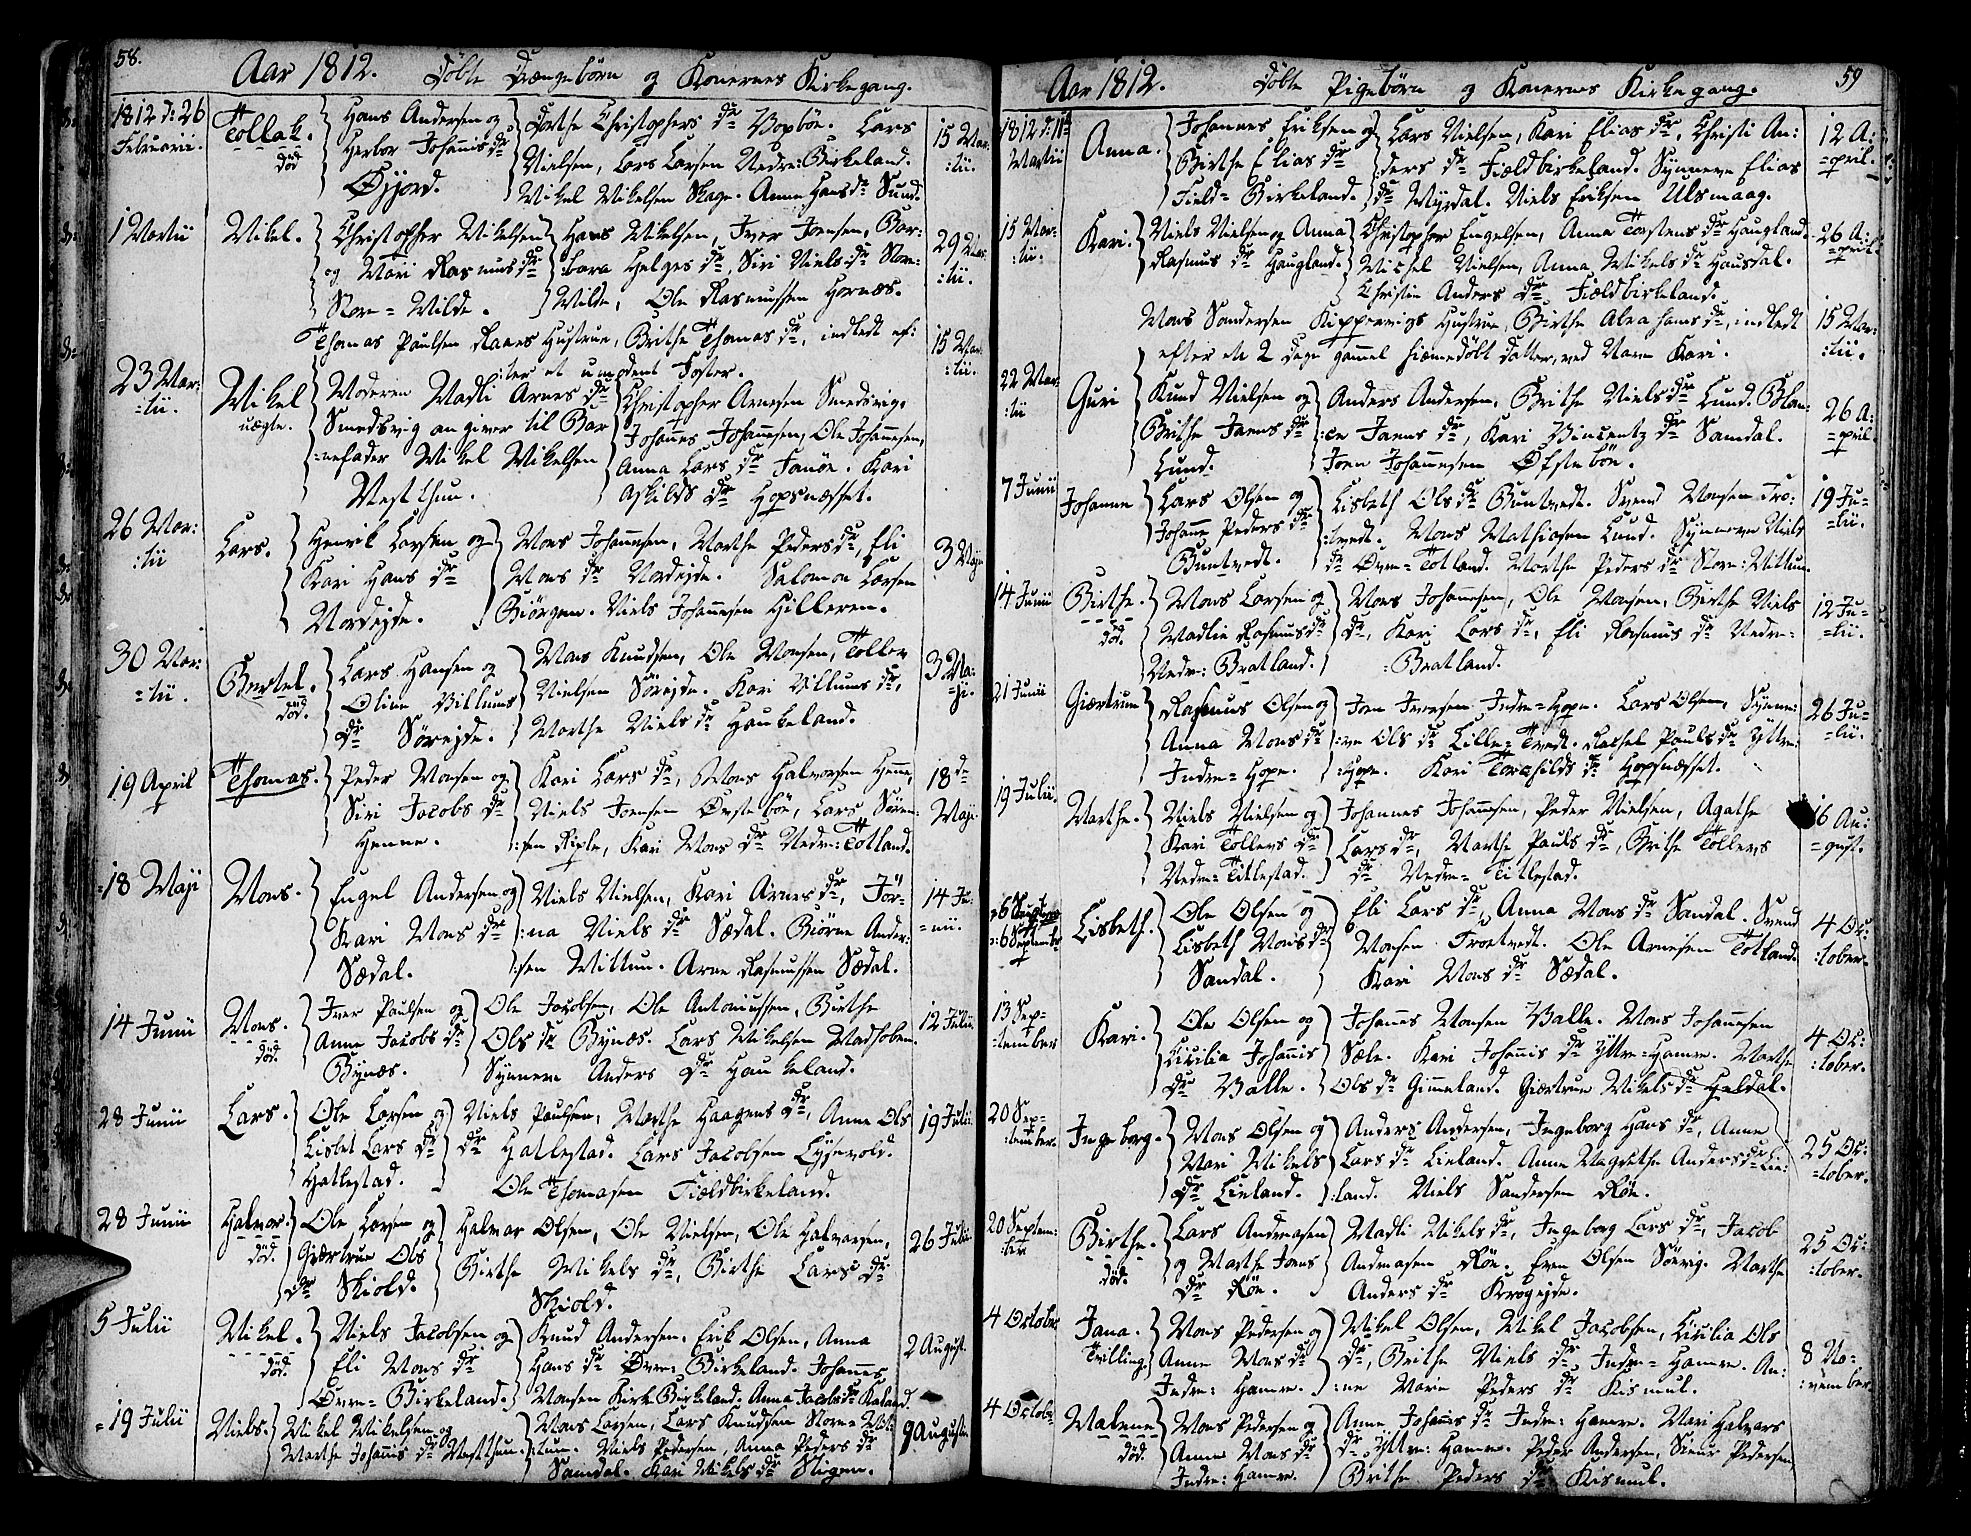 58.
Aar 1812. Døbte Drængebörn og Konernes Kirkegang.
1812 d: 26 Februarii. Tollak. død Hans Andersen og Herbor Johannis dr Øyjord. Dorthe Christophers dr Bopböe. Lars Nielsen, Lars Larsen Nedre: Birkeland. Mikel Mikelsen Skage. Anne Hans dr Sund. 15 Mar: :tii.
1 Martii Mikel. Christopher Mikelsen og Mari Rasmus dr Store= Milde. Hans Mikelsen, Iver Joensen, Bar: :bara Helges dr, Siri Niels dr Store: Milde, Ole Rasmussen Hornæs. 29 Mar: :tii.
Thomas Paulsen Raaes Hustrue, Brithe Thomas dr, indledt ef: :ter et umodent Foster. 15 Mar: :tii.
23 Mar: =tii. Mikel uægte. Moderen Madli Arnes dr Smedsvig angiver til Bar :nefader Mikel Mikelsen Vestthun. Christopher Arnesen Smedsvig. Johannes Johannesen, Ole Johannesen, Anna Lars dr Fanöe. Kari Askilds dr Hopsnæsset.
26 Mar: :tii Lars. Henrik Larsen og Kari Hans dr Nordejde. Mons Johannesen, Marthe Peders dr, Eli Mons dr Nordejde. Salomon Larsen Biörgen. Niels Johannesen Hilleren. 3 Maji
30 Mar: =tii. Bertel. død. Lars Hansen og Oline Villums dr Sørejde. Mons Knudsen, Ole Monsen, Toller Nielsen Sörejde. Kari Villums dr, Marthe Niels dr Haukeland. 3 Ma: =ji.
19 April Thomas. Peder Monsen og Siri Jacobs dr Henne. Kari Lars dr, Mons Halvorsen Henne, Niels Joensen Øvsteböe, Lars Sören: :sen Riple, Kari Mons dr Nedre: Totland. 18 d= Maji
=18 Maji Mons. Engel Andersen og Kari Mons dr Sædal. Niels Nielsen, Kari Arnes dr, Jör= :na Niels dr Sædal. Biörne Ander: :sen Mittun. Arne Rasmussen Sædal. 14 Ju= =nii.
14 Junii Mons. død. Iver Paulsen og Anne Jacobs dr Bynæs. Ole Jacobsen, Ole Antoniussen, Birthe Ols dr Bynæs. Lars Mikelsen Madhoben. Synneve Anders dr Haukeland. 12 Julii.
28 Junii Lars. Ole Larsen og Lisbet Lars dr Hatlestad. Niels Paulsen, Marthe Haagens dr, Anne Ols dr Hatlestad. Lars Jacobsen Lysevold. Ole Thomasen Fieldbirkeland. 19 Julii.
28 Junii Halvor. død. Ole Larsen og Giærtrue Ols dr Skiold. Halvor Olsen, Ole Nielsen, Ole Halvorsen, Birthe Mikels dr, Birthe Lars dr Skiold. 26 Julii
5 Julii Mikel. død. Niels Jacobsen og Eli Mons dr Øvre= Birkeland. Knud Andersen, Erik Olsen, Anna Hans dr Øvre: Birkeland. Johannes Monsen Kirke Birkeland. Anna Jacobs dr Kaland. 2 August.
=19 Julii Niels. Mikel Mikelsen og Marthe Johannis dr Vestthun. Mons Larsen, Lars Knudsen Store= Mit: :tun. Niels Pedersen, Anna Peders dr Samdal. Kari Mikels dr Stigen. 9 August
59
Aar 1812. Døbte Pigebörn og Konernes Kirkegang.
1812 d: 11te Martii Anna. Johannes Eriksen og Birthe Elias dr Field= Birkeland. Lars Nielsen, Kari Elias dr, Christi An: :ders dr Fieldbirkeland. Synneve Elias dr Myrdal. Niels Eriksen Ulsmaag. 12 A: =pril.
15 Mar= :tii. Kari. Niels Nielsen og Anna Rasmus dr Haugland. Christopher Engelsen, Anna Torstens dr Haugland. Michel Nielsen, Anna Mikels dr Hausdal. Christie Anders dr Fieldbirkeland. 26 A: =pril.
Mons Sandersen Kippervigs Hustrue, Birthe Abrahams dr, indledt efter en 2 Dage gammel hiemmedöbt Datter, ved Navn Kari. 15 Mar: :tii.
22 Mar: :tii Guri Knud Nielsen og Brithe Joens dr Lund. Anders Andersen, Brithe Niels dr Lund. Blan: :ce Joens dr, Kari Vincentz dr Samdal. Joen Johannesen Øfsteböe. 26 A: =pril
7 Junii Johanne Lars Olsen og Johanne Peders dr Buntvedt. Lisbeth Ols dr Buntvedt. Svend Monsen Tro: :tvedt. Mons Mathiasen Lund. Synneve Niels dr Øvre= Totland. Marthe Peders dr Store: Mittun. 19 Ju= =lii.
14 Junii Birthe. død. Mons Larsen og Madlie Rasmus dr Nedre: Bratland. Mons Johannesen, Ole Monsen, Birthe Niels dr, Kari Lars dr, Eli Rasmus dr Nedre= =Bratland. 12 Ju= =lii.
21 Junii Giærtrue Rasmus Olsen og Anna Mons dr Indre= Hope. Joen Iversen Indre= Hope. Lars Olsen, Synne: :ve Ols dr Lille= Tvedt. Rachel Pauls dr Yttre: :Hope. Kari Torchilds dr Hopsnæsset. 26 Ju= =lii.
19 Julii. Marthe. Niels Nielsen og Kari Tollevs dr Nedre= Titlestad. Johannes Johannesen, Peder Nielsen, Agathe Lars dr, Marthe Pauls dr, Brithe Tollevs dr Nedre= Titlestad. 16 Au: =gust.
:6 September Lisbeth. Ole Olsen og Lisbeth Mons dr Sandal. Eli Lars dr, Anna Mons dr Sandal. Svend Monsen Troetvedt. Ole Arnesen Totland. Kari Mons dr Sædal. 4 Oc: :tober.
13 Sep= =tember Kari. Ole Olsen og Cicilia Johannis dr Valle. Johannes Monsen Valle. Mons Johannesen Sæle. Kari Johannis dr Yttre= Hamre. Marthe Ols dr Gimmeland. Giærtrue Mikels dr Heldal. 4 Oc: :tober.
20 Sep= :tember. Ingeborg. Mons Olsen og Mari Mikels dr Lieland. Anders Andersen, Ingeborg Hans dr, Anne Lars dr Lieland. Anne Magrethe Anders dr Lie: :land. Niels Sandersen Röe. 25 Oc: =tober.
20 Septem: :ber Birthe. død. Lars Andreasen og Marthe Joens dr Röe. Madli Mikels dr, Ingeborg Lars dr, Jacob Andreasen Röe. Even Olsen Sörvig. Marthe Anders dr Krogejde. 25 Oc: :tober.
4 October Jana. Tvilling Mons Pedersen og Anne Mons dr Indre: Hamre. Mikel Olsen, Mikel Jacobsen, Cicilia Ols dr, Brithe Niels dr Indre= Hamre. An: :ne Marie Peders dr Kismul. 8 No= :vember
4 Octob: Malene død. Mons Pedersen og Anne Mons dr Indre: Hamre. Anne Johannis dr Indre: Hamre. Mari Halvors dr Yttre: Hamre. Peder Andersen, Sieur Pedersen, Brithe Peders dr Kismul.